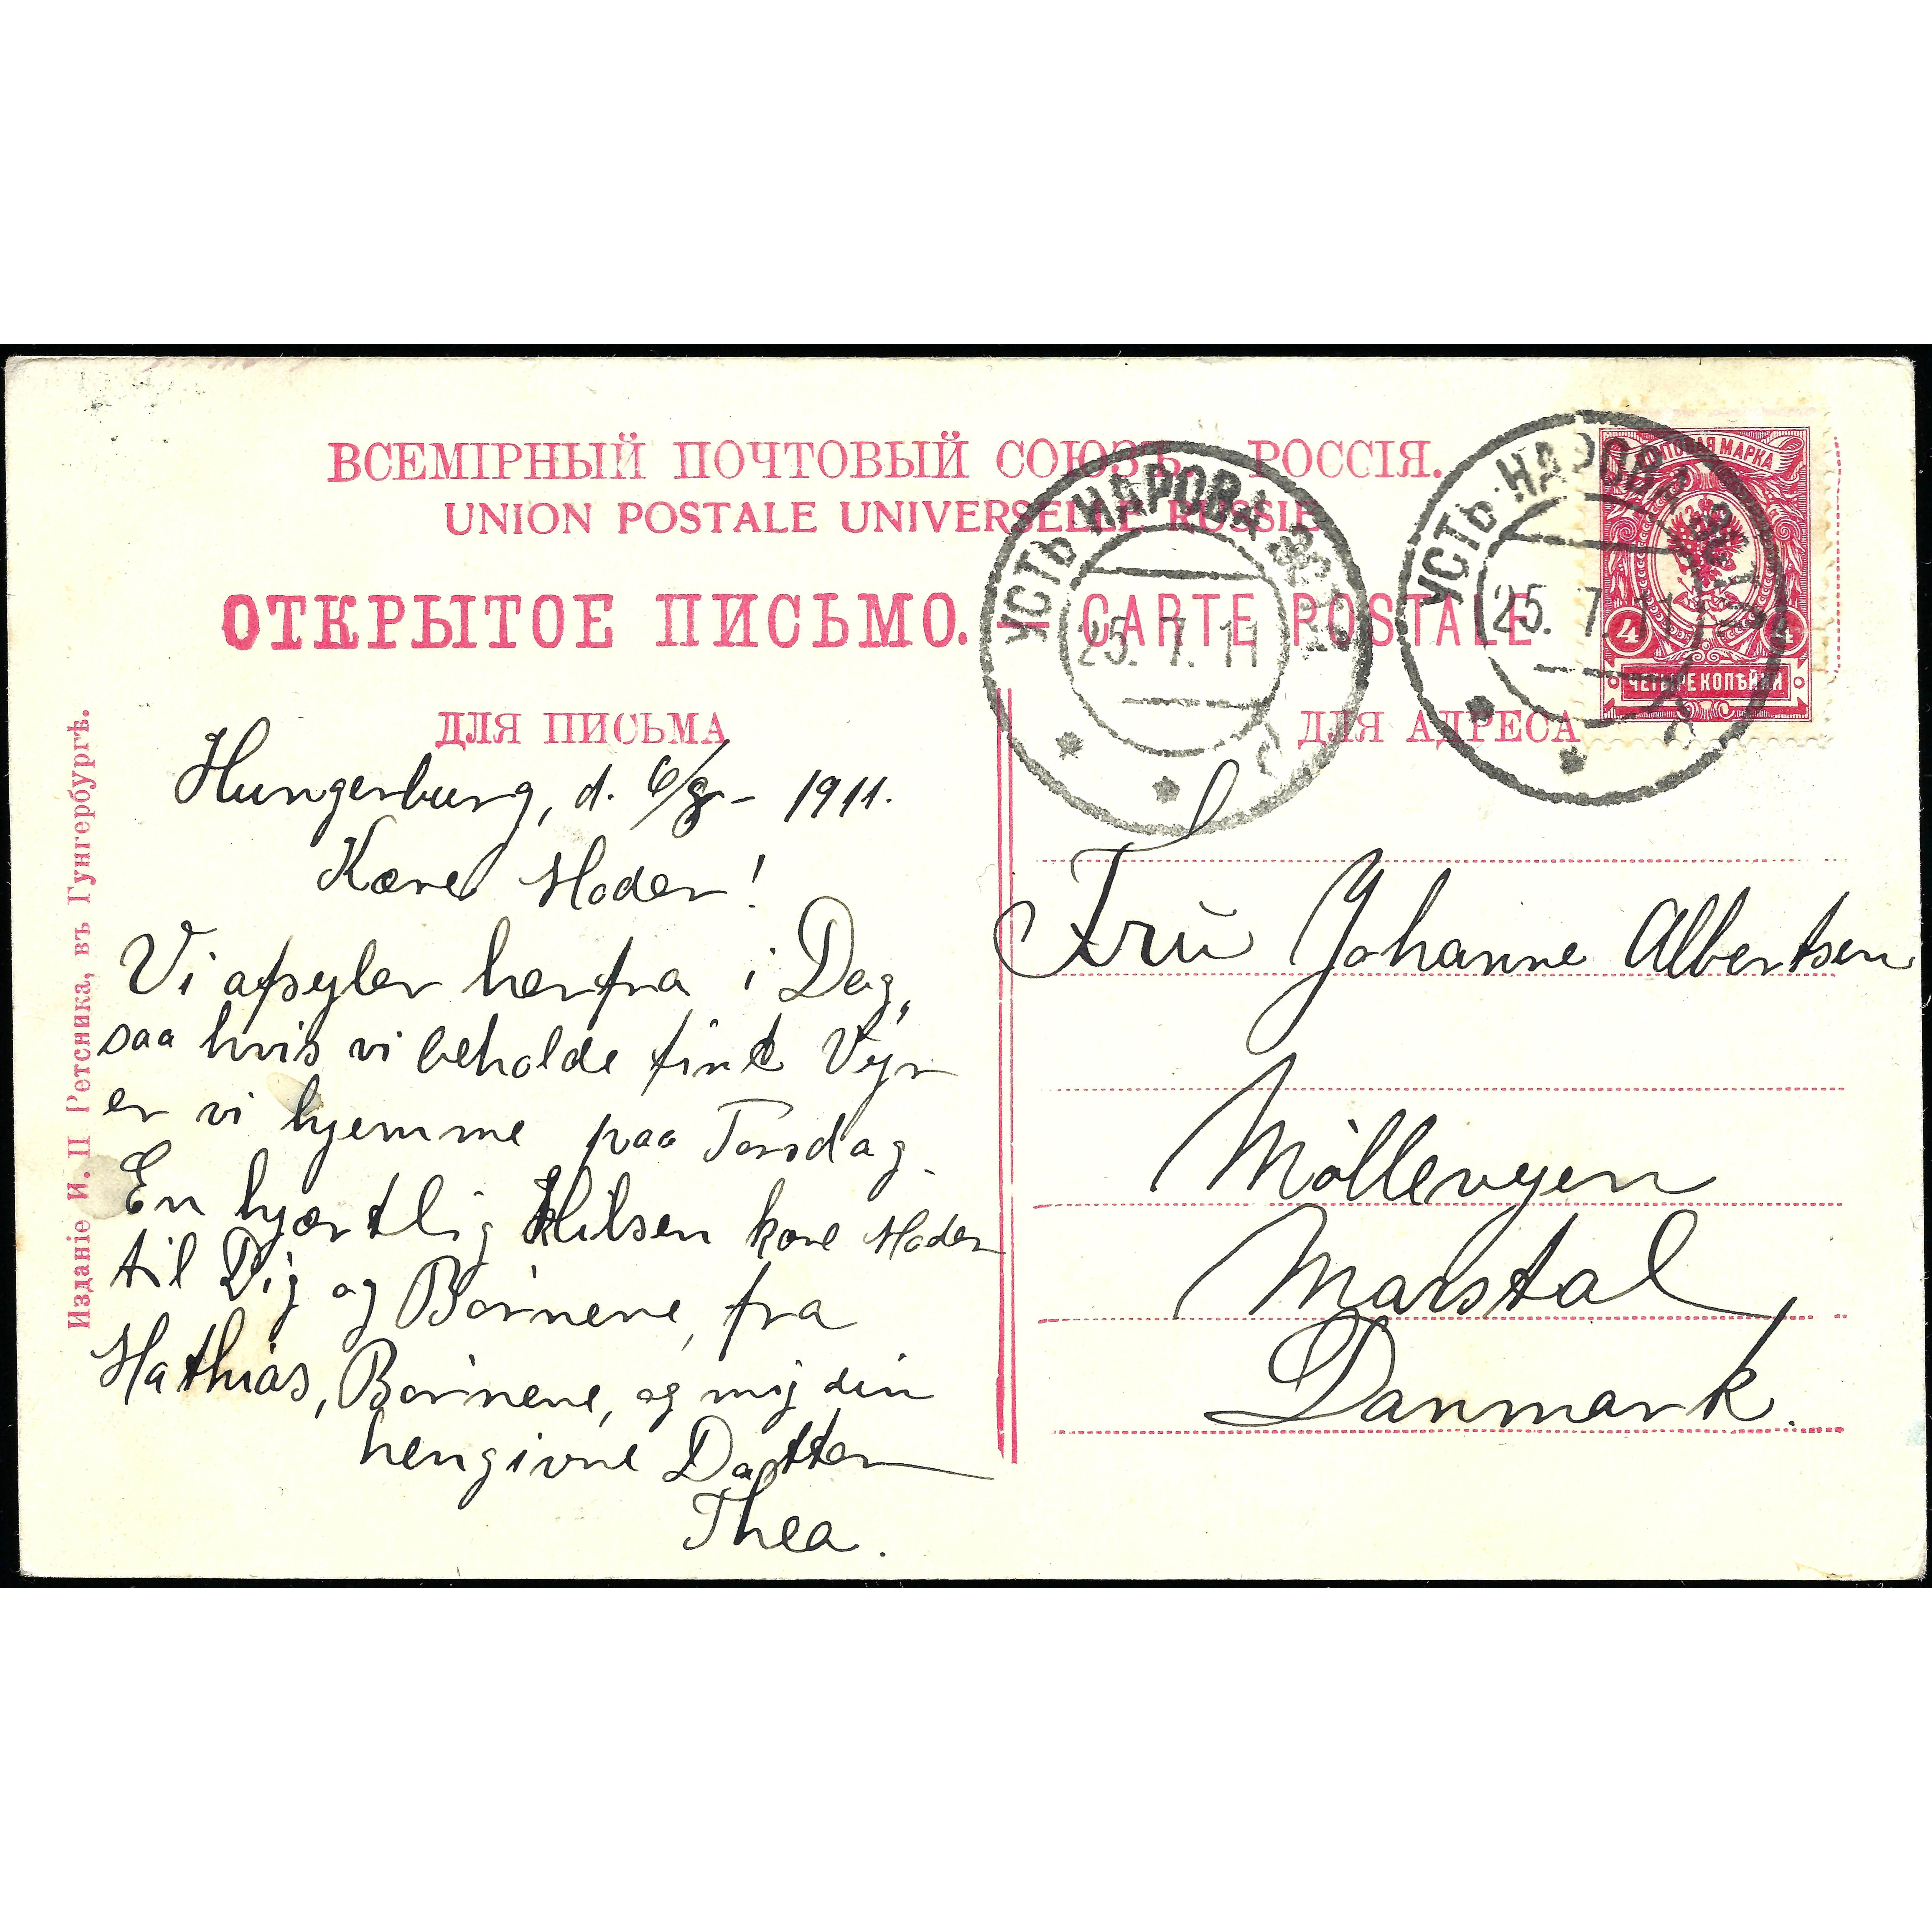 ВСЕМІРНЫЙ ПОЧТОВЫЙ СОЮЗЪ. РОССІЯ.
UNION POSTALE UNIVERSELLE RUSSIE
ОТКРЫТОЕ ПИСЬМО. CARTE POSTALE
ДЛЯ ПИСЬМА
ДЛЯ АДРЕСА
УСТЬ-НАРОВА
25. 7. 11
УСТЬ-НАРОВА
25. 7. 11
ПОЧТОВАЯ МАРКА
4 4
ЧЕТЫРЕ КОПѢЙКИ
Изданіе И. П Ретсника, въ Гунгербургѣ.
Hungerburg, d. 6/8 - 1911.
Kære Moder!
Vi afsejler herfra i Dag,
saa hvis vi beholde fint Vejr
er vi hjemme paa Torsdag.
En hjærtlig Hilsen kære Moder
til Dig og Børnene, fra
Mathias, Børnene, og mig din
hengivne Datter
Thea.
Fru Johanne Albertsen
Møllevejen
Marstal
Danmark.